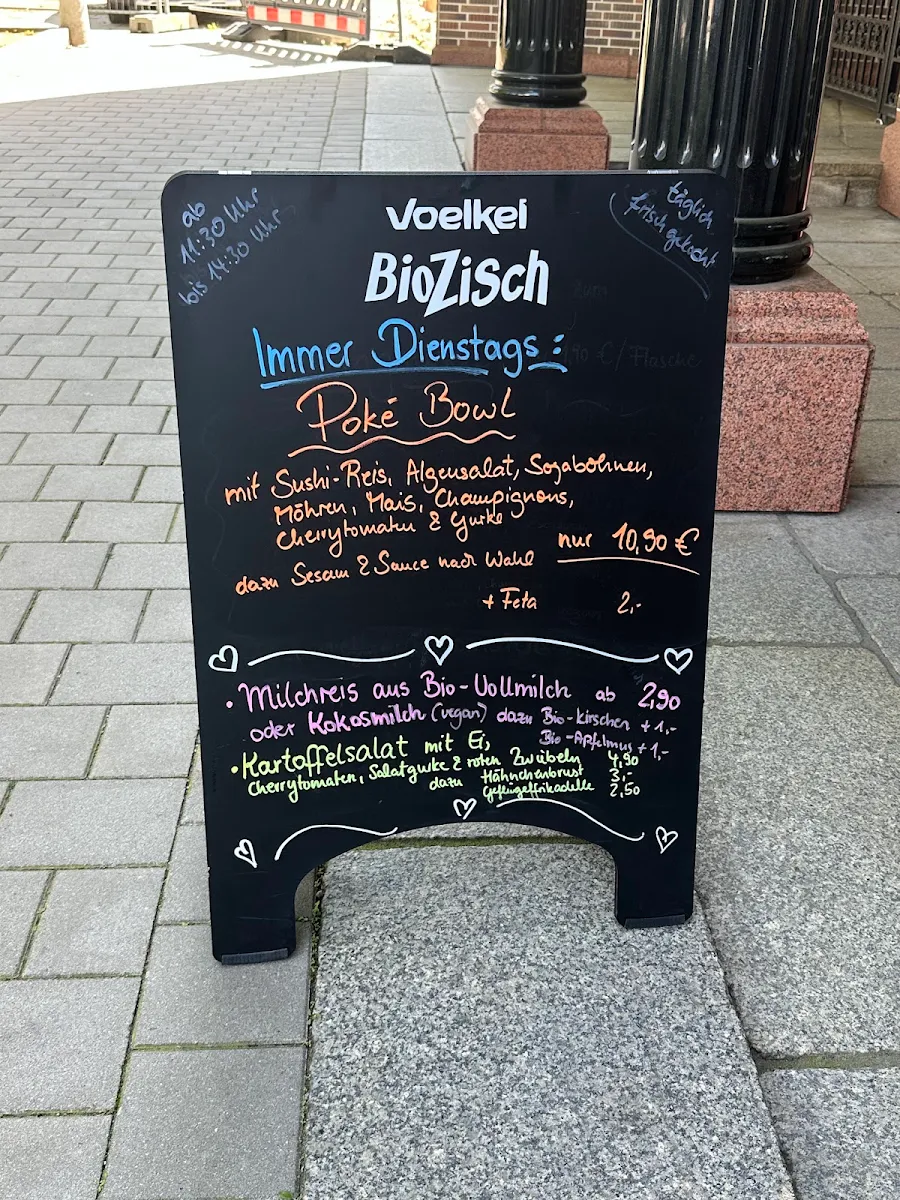 ab
11:30 Uhr
bis 14:30 Uhr
täglich
frisch gekocht
Voelkel
BioZisch
Immer Dienstags:
Poké Bowl
mit Sushi-Reis, Algensalat, Sojabohnen,
Möhren, Mais, Champignons,
Cherrytomaten & Gurke
nur 10,90 €
dazu Sesam & Sauce nach Wahl
+ Feta 2,-
• Milchreis aus Bio-Vollmilch ab 2,90
oder Kokosmilch (vegan) dazu Bio-Kirschen +1,-
Bio-Apfelmus +1,-
• Kartoffelsalat mit Ei,
Cherrytomaten, Salatgurke & roten Zwiebeln 4,90
dazu Hähnchenbrust 3,-
Geflügelfrikadelle 2,50